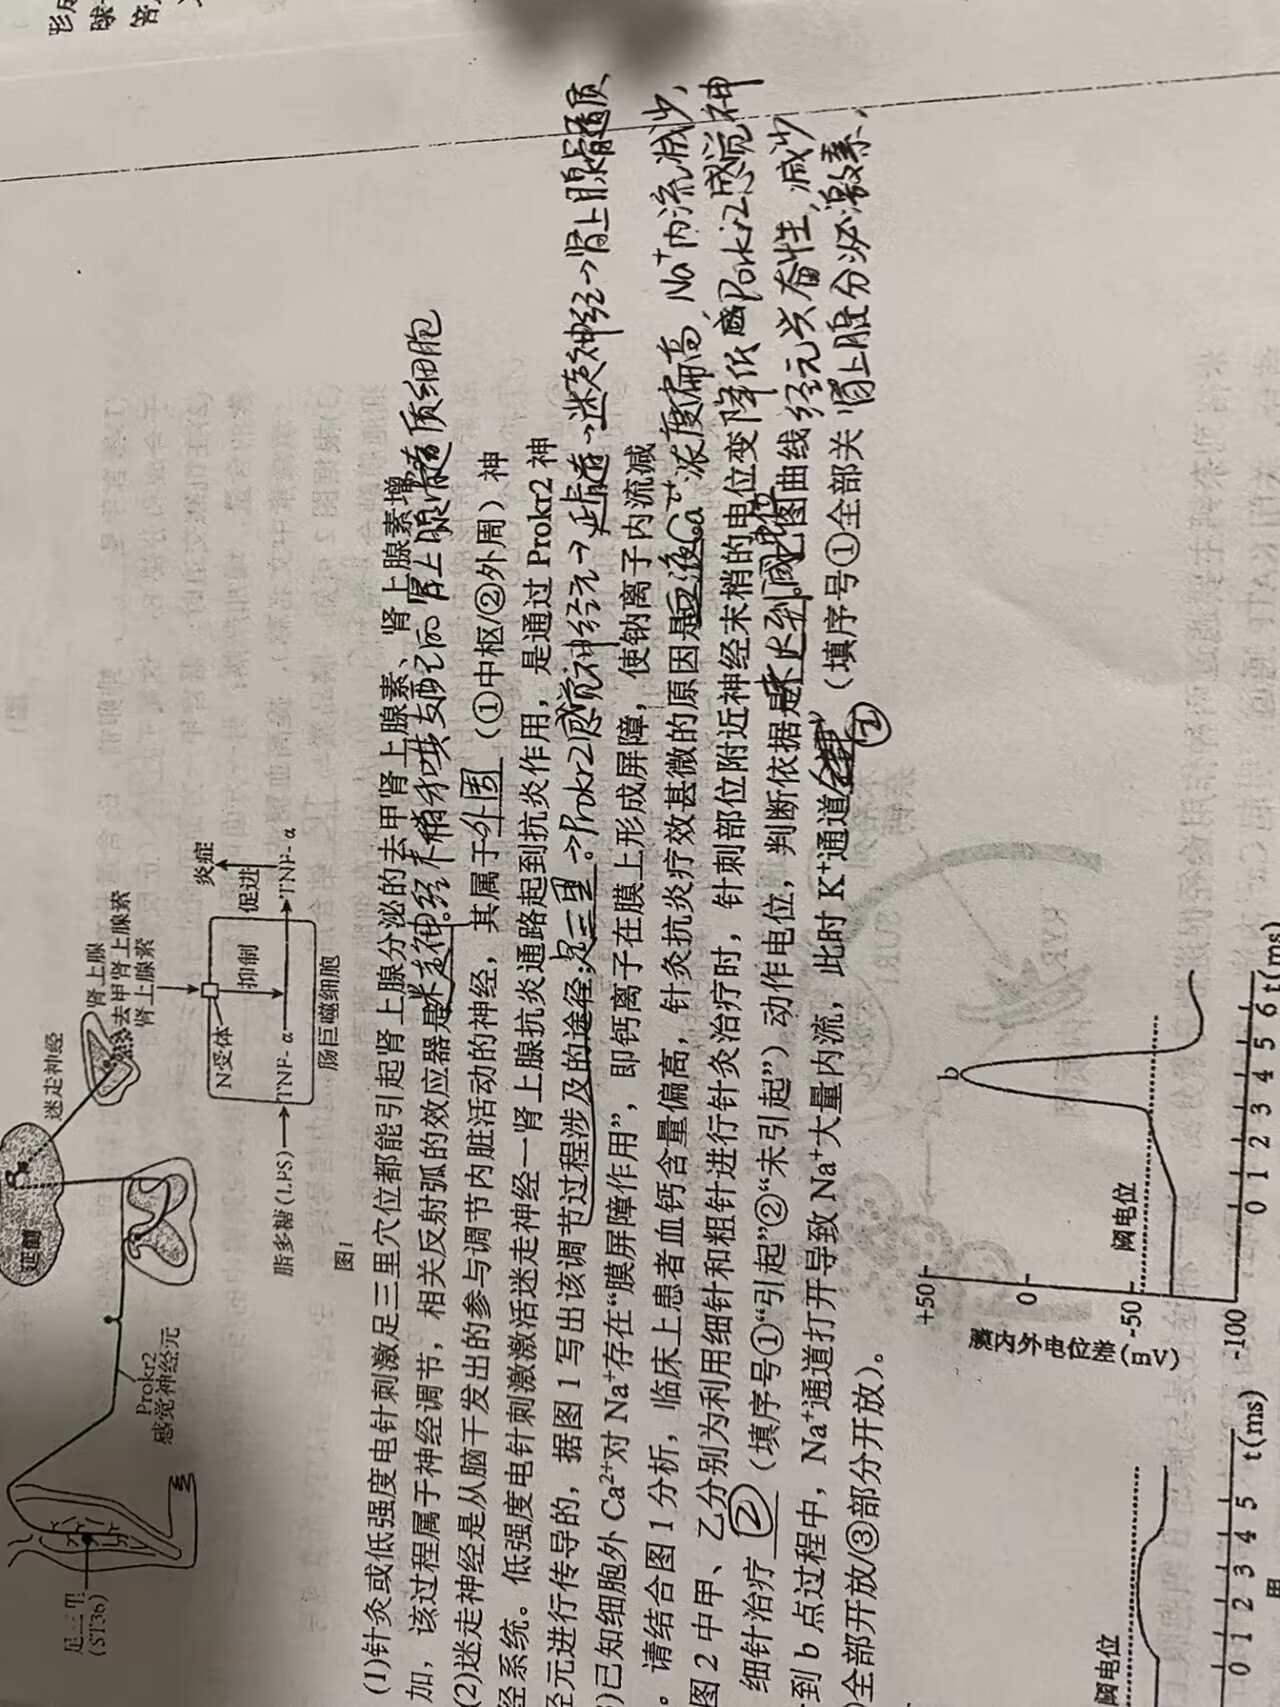 形成
延髓
迷走神经
肾上腺
去甲肾上腺素
肾上腺素
Prokr2
感觉神经元
足三里
(ST36)
N受体
抑制
促进
炎症
脂多糖(LPS)
TNF-α
TNF-α
肠巨噬细胞
图1
(1)针灸或低强度电针刺激足三里穴位都能引起肾上腺分泌的去甲肾上腺素、肾上腺素增
加，该过程属于神经调节，相关反射弧的效应器是迷走神经末梢和其支配的肾上腺髓质细胞
(2)迷走神经是从脑干发出的参与调节内脏活动的神经，其属于外周（①中枢/②外周）神
经系统。低强度电针刺激激活迷走神经—肾上腺抗炎通路起到抗炎作用，是通过 Prokr2 神
经元进行传导的，据图 1 写出该调节过程涉及的途径:足三里→Prokr2感觉神经元→延髓→迷走神经→肾上腺髓质
)已知细胞外 Ca²⁺对 Na⁺存在“膜屏障作用”，即钙离子在膜上形成屏障，使钠离子内流减
。请结合图 1 分析，临床上患者血钙含量偏高，针灸抗炎疗效甚微的原因是血液Ca²⁺浓度偏高，Na⁺内流减少，
降低 Porki2感觉神
经元兴奋性，减少
肾上腺分泌激素，
图 2 中甲、乙分别为利用细针和粗针进行针灸治疗时，针刺部位附近神经末梢的电位变
图曲线
细针治疗②（填序号①“引起”②“未引起”）动作电位，判断依据是未达到阈电位
到 b 点过程中，Na⁺通道打开导致 Na⁺大量内流，此时 K⁺通道②（填序号①全部关
)全部开放/③部分开放）。
阈电位
0 1 2 3 4 5 t(ms)
甲
膜内外电位差(mV)
+50
0
-50
-100
阈电位
b
0 1 2 3 4 5 6 t(ms)